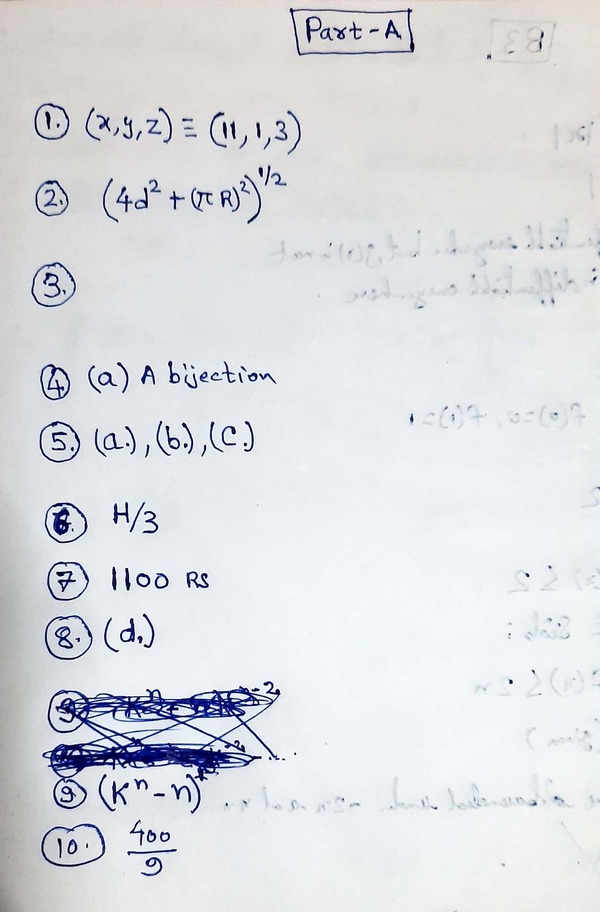 Part-A
1. (x,y,z) ≡ (11,1,3)
2. (4d² + (πR)²)^1/2
3.
4. (a) A bijection
5. (a.), (b.), (c.)
6. H/3
7 1100 RS
8. (d.)
9 (K^n - n)
10. 400/9